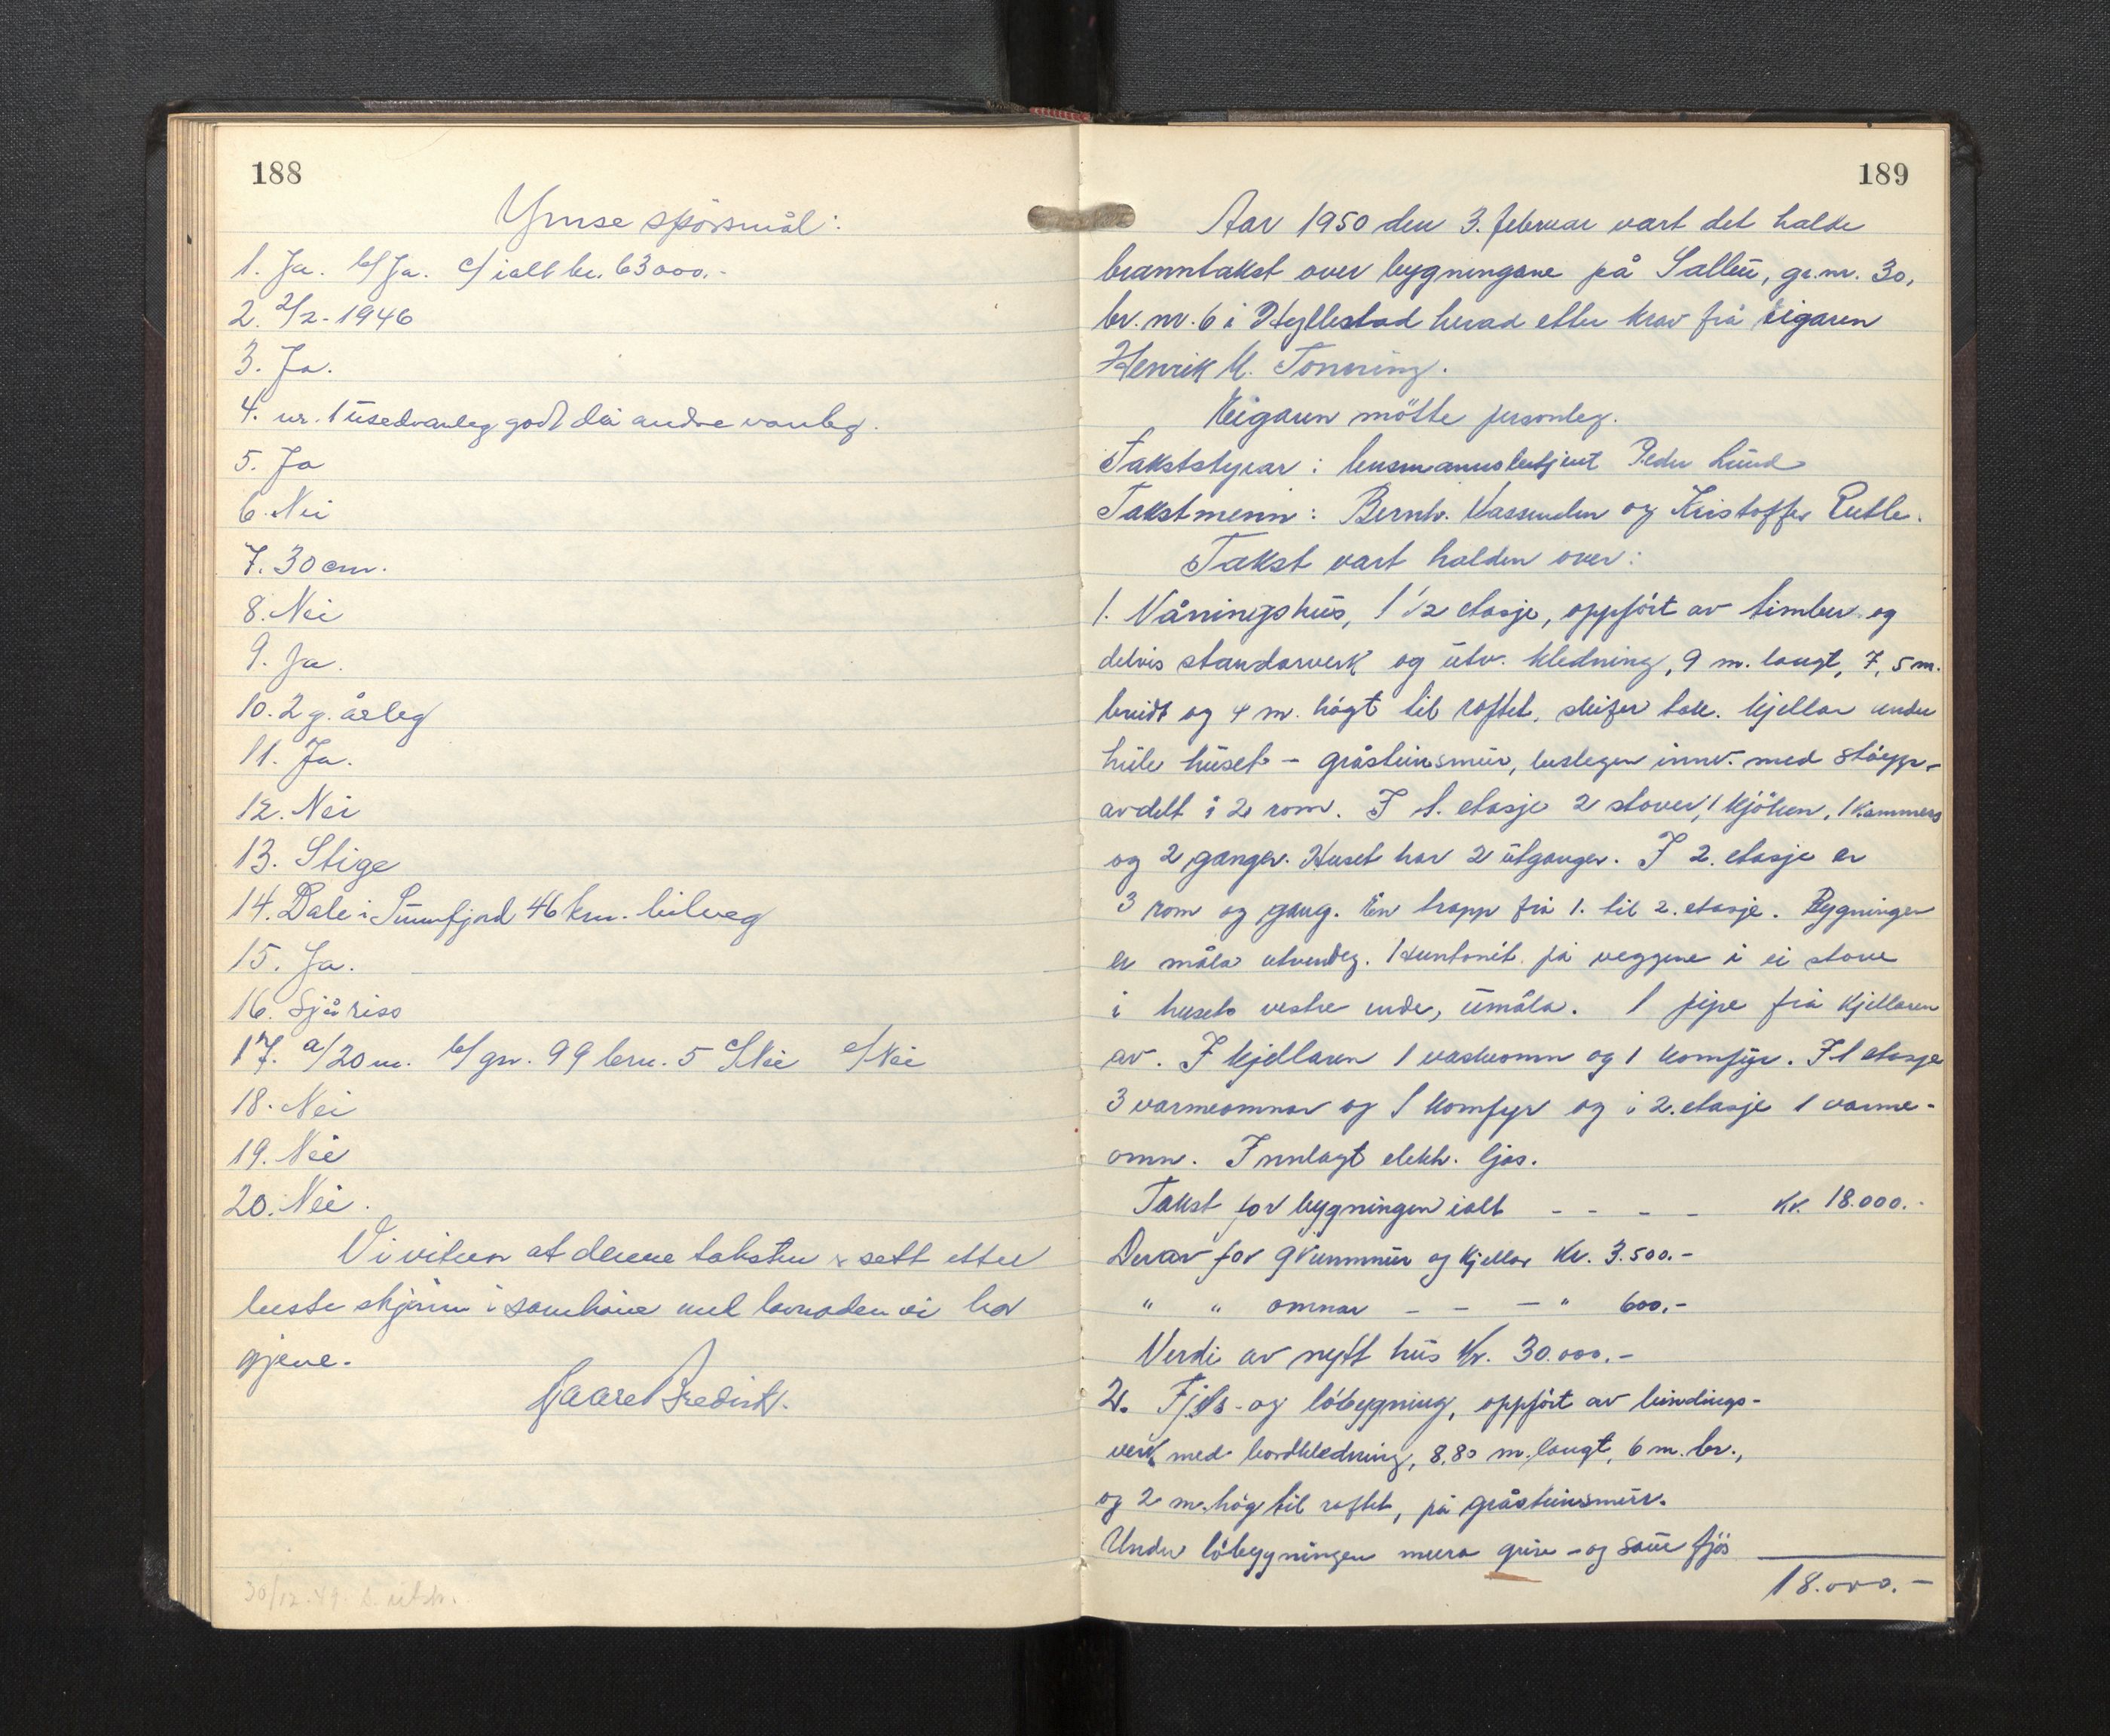 188
Ymse spörsmål:
1. Ja. b/ Ja. c/ ialt kr. 63000.-
2. 2/2-1946
3. Ja.
4. nr. 1 usedvanleg godt dei andre vanleg.
5. Ja
6. Nei
7. 30 cm.
8. Nei
9. Ja.
10. 2 g. årleg
11. Ja.
12. Nei
13. Stige
14. Dale i Sunnfjord 46 km. bilveg
15. Ja.
16. Sjå riss
17. a/ 20 m. b/ gnr. 99 brn. 5 c/ Nei e/ Nei
18. Nei
19. Nei
20. Nei.
Vi vitnar at denne taksten er sett etter
beste skjönn i samhöve med lovnaden vi har
gjeve.
30/12-49. s. utsk.
189
Aar 1950 den 3. februar vart det halde
branntakst over bygningane på Salleü, gr.nr. 30,
br. nr. 6 i Hyllestad herad etter krav frå eigaren
Henrik M. Tonning.
Eigaren mötte personleg.
Takststyrar: lensmannsbetjent Peder Lund
Takstmenn: Bernh. Vassenden og Kristoffer Eutle.
Takst vart halden over:
1. Våningshus, 1 1/2 etasje, oppfört av timber og
delvis standarverk og utv. kledning, 9 m. langt, 7,5 m.
breidt og 4 m. högt til roftet, skifer tak. Kjellar under
heile huset - gråsteinsmur, beslegen innv. med støyp-
avdelt i 2 rom. I 1. etasje 2 stover, 1 kjöken, 1 kammers
og 2 ganger. Huset har 2 utganger. I 2. etasje er
3 rom og gang. Ein trapp frå 1. til 2. etasje. Bygningen
er måla utvendig. Huntonit på veggene i ei stove
i husets vestre ende, umåla. 1 pipe frå kjellaren
av. I kjellaren 1 vaskeomn og 1 komfyr. I 1 etasje
3 varmeomnar og 1 komfyr og i 2. etasje 1 varme-
omn. Innlagt elektr. ljos.
Takst for bygningen ialt - - - - kr. 18.000.-
Derav for grunnmur og kjellar kr. 3.500.-
" " omnar - - - " 600.-
Verdi av nytt hus kr. 30.000.-
2. Fjös- og löbygning, oppfört av bindings-
verk med bordkledning, 8,80 m. langt, 6 m. br.,
og 2 m. hög til roftet, på gråsteinsmur.
Under löbygningen mura grise- og sauefjös
18.000.-